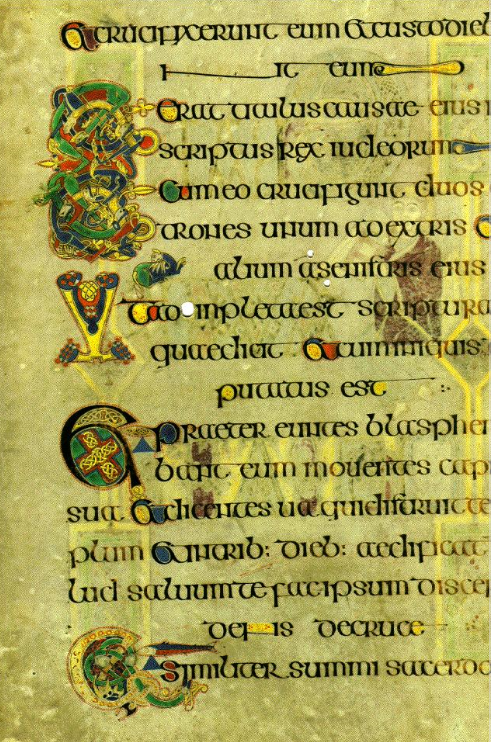 Et crucifixerunt eum et custodieb
nt eum
Et erat titulus causae eius i
scriptus rex iudeorum
Et cum eo crucifigunt duos
trones unum adextris et
alium asenistris eius
Ut ad inpletaest scriptura
quae dicit et cum iniquis
putatus est
Et praeter euntes blasphe
bant eum mouentes cap
sua et dicentes ua qui distruit te
plum et intrib: dieb: aedificat
saluum te fac ipsum disce
dens decruce
Similiter summi sacerdo